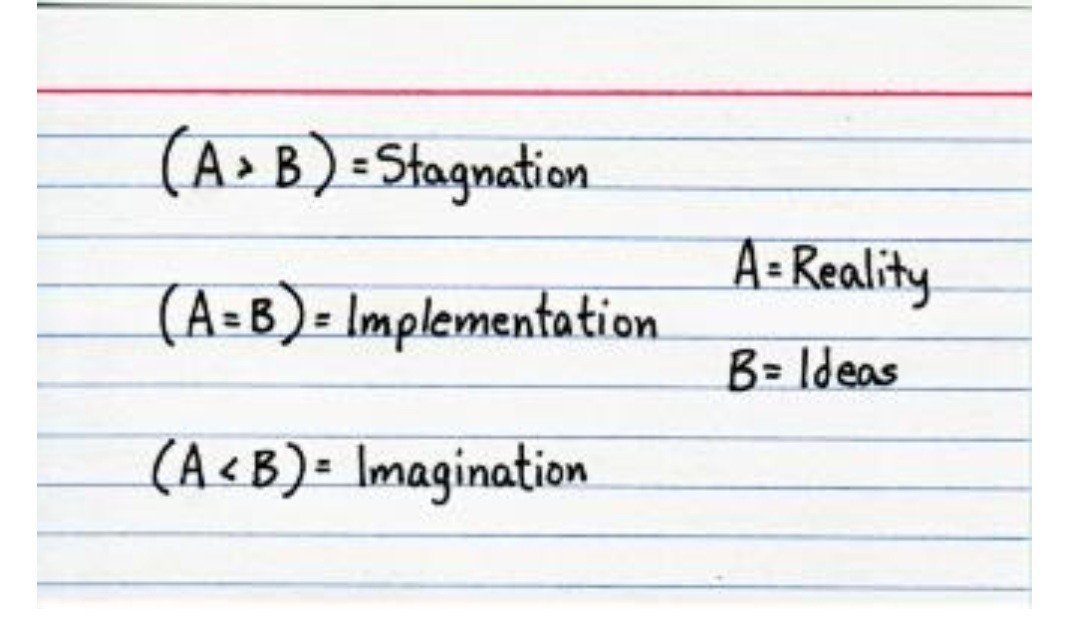 (A > B) = Stagnation
A = Reality
(A = B) = Implementation
B = Ideas
(A < B) = Imagination